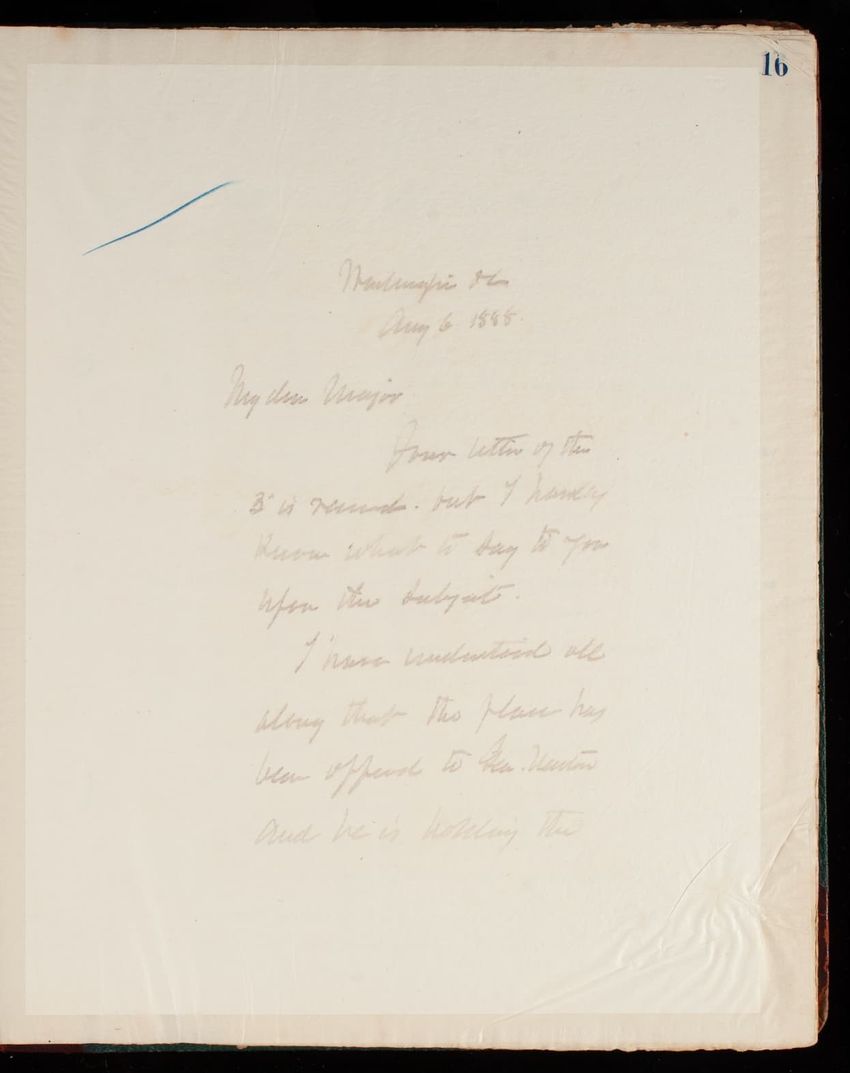 16
Washington DC
Aug 6 1888.
My dear Major
Your letter of the
3d is received. but I hardly
know what to say to you
upon the subject.
I have understood all
along that the place has
been offered to Gen. Newton
and he is holding the